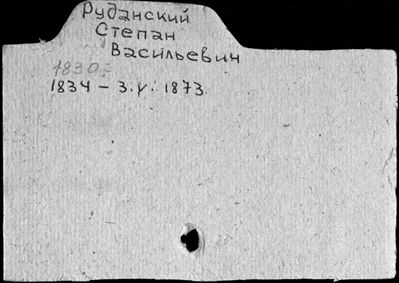 Руданский
Степан
Васильевич
1830г
1834 – 3.V. 1873